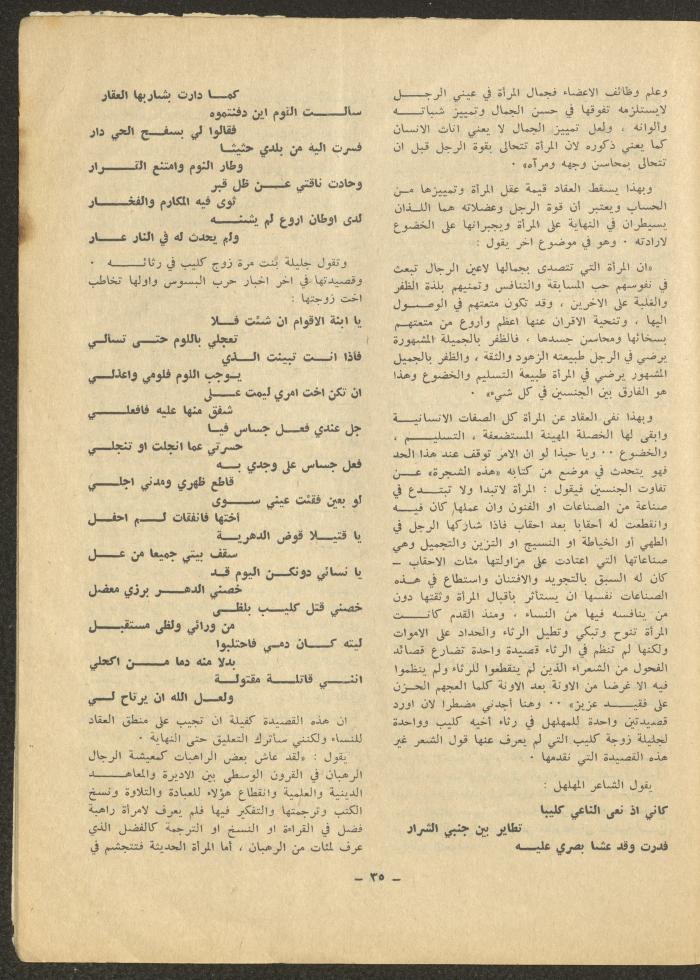 وعلم وظائف الاعضاء فجمال المرأة في عيني الرجل
لايستلزمه تفوقها في حسن الجمال وتمييز شياته
وألوانه ، ولعل تمييز الجمال لا يعني اناث الانسان
كما يعني ذكوره لان المرأة تتحالى بقوة الرجل قبل ان
تتحالى بمحاسن وجهه ومرآه» ٠
وبهذا يسقط العقاد قيمة عقل المرأة وتمييزها من
الحساب ويعتبر ان قوة الرجل وعضلاته هما اللذان
يسيطران في النهاية على المرأة ويجبرانها على الخضوع
لارادته ٠ وهو في موضوع اخر يقول :
«ان المرأة التي تتصدى بجمالها لاعين الرجال تبعث
في نفوسهم حب المسابقة والتنافس وتمنيهم بلذة الظفر
والغلبة على الاخرين ، وقد تكون متعتهم في الوصول
اليها ، وتنحية الاقران عنها اعظم وأروع من متعتهم
بسخائها ومحاسن جسدها ، فالظفر بالجميلة المشهورة
يرضي في الرجل طبيعته الزهود والثقة ، والظفر بالجميل
المشهور يرضي في المرأة طبيعة التسليم والخضوع وهذا
هو الفارق بين الجنسين في كل شيء» ٠
وبهذا نفى العقاد عن المرأة كل الصفات الانسانية
وابقى لها الخصلة المهينة المستضعفة ، التسليم ،
والخضوع ٠٠ ويا حبذا لو ان الامر توقف عند هذا الحد
فهو يتحدث في موضع من كتابه «هذه الشجرة» عن
تفاوت الجنسين فيقول : المرأة لاتبدا ولا تبتدع في
صناعة من الصناعات او الفنون وان عملها كان فيه
وانقطعت له أحقابا بعد احقاب فاذا شاركها الرجل في
الطهي أو الخياطة او النسيج او التزين والتجميل وهي
صناعاتها التي اعتادت على مزاولتها مئات الاحقاب ــ
كان له السبق بالتجويد والافتنان واستطاع في هذه
الصناعات نفسها ان يستأثر بأقبال المرأة وثقتها دون
من ينافسه فيها من النساء ، ومنذ القدم كانت
المرأة تنوح وتبكي وتطيل الرثاء والحداد على الاموات
ولكنها لم تنظم في الرثاء قصيدة واحدة تضارع قصائد
الفحول من الشعراء الذين لم ينقطعوا للرثاء ولم ينظموا
فيه الا غرضا من الاونة بعد الاونة كلما العجهم الحزن
على فقيد عزيز» ٠٠ وهنا أجدني مضطرا لان اورد
قصيدتين واحدة للمهلهل في رثاء أخيه كليب وواحدة
لجليلة زوجة كليب التي لم يعرف عنها قول الشعر غير
هذه القصيدة التي نقدمها ٠
يقول الشاعر المهلهل :
كأني اذ نعى الناعي كليبا
تطاير بين جنبي الشرار
فدرت وقد عشا بصري عليه
كما دارت بشاربها العقار
سألت القوم اين دفنتموه
فقالوا لي بسفح الحي دار
فسرت اليه من بلدي حثيثا
وطار النوم وامتنع القرار
وحادت ناقتي عن ظل قبر
ثوى فيه المكارم والفخار
لدى اوطان اروع لم يشنه
ولم يحدث له في النار عار
وتقول جليلة بنت مرة زوج كليب في رثائه ٠
وقصيدتها في اخر اخبار حرب البسوس واولها تخاطب
اخت زوجتها :
يا ابنة الاقوام ان شئت فلا
تعجلي باللوم حتى تسألي
فاذا انت تبينت الذي
يوجب اللوم فلومي واعذلي
ان تكن اخت امري ليمت على
شفق منها عليه فافعلي
جل عندي فعل جساس فيا
حسرتي عما انجلت او تنجلي
فعل جساس على وجدي به
قاطع ظهري ومدني اجلي
لو بعين فقئت عيني سوى
أختها فانفقات لم احفل
يا قتيلا قوض الدهر ية
سقف بيتي جميعا من عل
يا نسائي دونكن اليوم قد
خصني الدهر برزي معضل
خصني قتل كليب بلظى
من ورائي ولظى مستقبل
ليته كان دمي فاحتلبوا
بدلا منه دما من اكحلي
انني قاتلة مقتولة
ولعل الله ان يرتاح لي
ان هذه القصيدة كفيلة ان تجيب على منطق العقاد
للنساء ولكنني سأترك التعليق حتى النهاية ٠
يقول : «لقد عاش بعض الراهبات كمعيشة الرجال
الرهبان في القرون الوسطى بين الاديرة والمعاهد
الدينية والعلمية وانقطاع هؤلاء للعبادة والتلاوة ونسخ
الكتب وترجمتها والتفكير فيها فلم يعرف لامرأة راهبة
فضل في القراءة او النسخ او الترجمة كالفضل الذي
عرف لمئات من الرهبان ، أما المرأة الحديثة فتتجشم في
ــ ٣٥ ــ